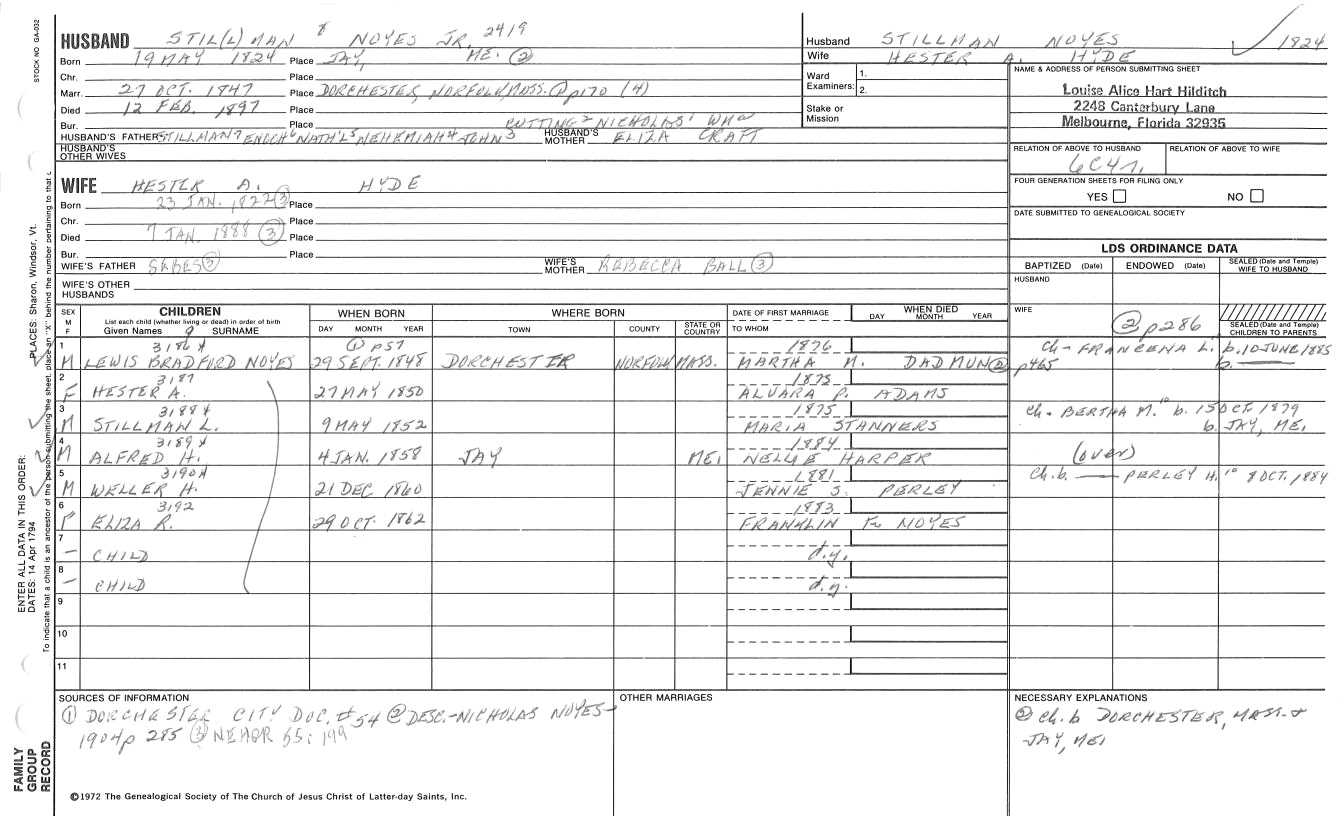 STOCK NO. GA-032
HUSBAND STIL(L)MAN 8 NOYES JR. 2419
Born 19 MAY 1824 Place JAY, ME. ②
Chr. Place
Marr. 27 OCT. 1847 Place DORCHESTER, NORFOLK, MASS. ② p170 (4)
Died 12 FEB. 1897 Place
Bur. Place CUTTING 2 NICHOLAS' WM a
HUSBAND'S FATHER STILLMAN 7 ENOCH 6 NATH'L 5 NEHEMIAH 4 JOHN 3 HUSBAND'S MOTHER ELIZA CRAFT
HUSBAND'S OTHER WIVES
WIFE HESTER A. HYDE
Born 23 JAN. 1822 ③ Place
Chr. Place
Died 7 JAN. 1888 ③ Place
Bur. Place
WIFE'S FATHER ③ WIFE'S MOTHER REBECCA BALL ③
WIFE'S OTHER HUSBANDS
Husband STILLMAN NOYES 1824
Wife HESTER A. HYDE
Ward Examiners: 1.
2.
Stake or Mission
NAME & ADDRESS OF PERSON SUBMITTING SHEET
Louise Alice Hart Hilditch
2248 Canterbury Lane
Melbourne, Florida 32935
RELATION OF ABOVE TO HUSBAND RELATION OF ABOVE TO WIFE
6C4r.
FOUR GENERATION SHEETS FOR FILING ONLY
YES NO
DATE SUBMITTED TO GENEALOGICAL SOCIETY
LDS ORDINANCE DATA
BAPTIZED (Date) ENDOWED (Date) SEALED (Date and Temple) WIFE TO HUSBAND
HUSBAND
WIFE
② p286 SEALED (Date and Temple) CHILDREN TO PARENTS
SEX M F
CHILDREN
List each child (whether living or dead) in order of birth
Given Names 9 SURNAME
WHEN BORN
DAY MONTH YEAR
WHERE BORN
TOWN COUNTY STATE OR COUNTRY
DATE OF FIRST MARRIAGE
TO WHOM
WHEN DIED
DAY MONTH YEAR
1 3186 x ① p57 1876
M LEWIS BRADFORD NOYES 29 SEPT. 1848 DORCHESTER NORFOLK MASS. MARTHA M. DADMUN ② p465
ch - FRANCENA L. b. 10 JUNE 1885
b.
2 3187 1875
F HESTER A. 27 MAY 1850 ALVARA P. ADAMS
3 3188 x 1875
M STILLMAN L. 9 MAY 1852 MARIA STANNERS
ch - BERTHA M. 10 b. 15 OCT. 1879
b. JAY, ME.
4 3189 x 1884
M ALFRED H. 4 JAN. 1858 JAY ME. NELLIE HARPER (over)
5 3190 x 1881
M WELLER H. 21 DEC 1860 JENNIE S. PERLEY
ch. b. — PERLEY H. 10 8 OCT. 1884
6 3192 1883
F ELIZA R. 29 OCT. 1862 FRANKLIN F. NOYES
7
- CHILD d.y.
8
- CHILD d.y.
9
10
11
SOURCES OF INFORMATION
① DORCHESTER CITY DOC. #54 ② DESC. - NICHOLAS NOYES -
1904 p 285 ③ NEHGR 55: 199
OTHER MARRIAGES
NECESSARY EXPLANATIONS
② ch. b DORCHESTER, MASS. +
JAY, ME.
©1972 The Genealogical Society of The Church of Jesus Christ of Latter-day Saints, Inc.
FAMILY
GROUP
RECORD
ENTER ALL DATA IN THIS ORDER:
DATES: 14 Apr 1794
PLACES: Sharon, Windsor, Vt.
To indicate that a child is an ancestor of the person submitting the sheet, place an "X" behind the number pertaining to that c